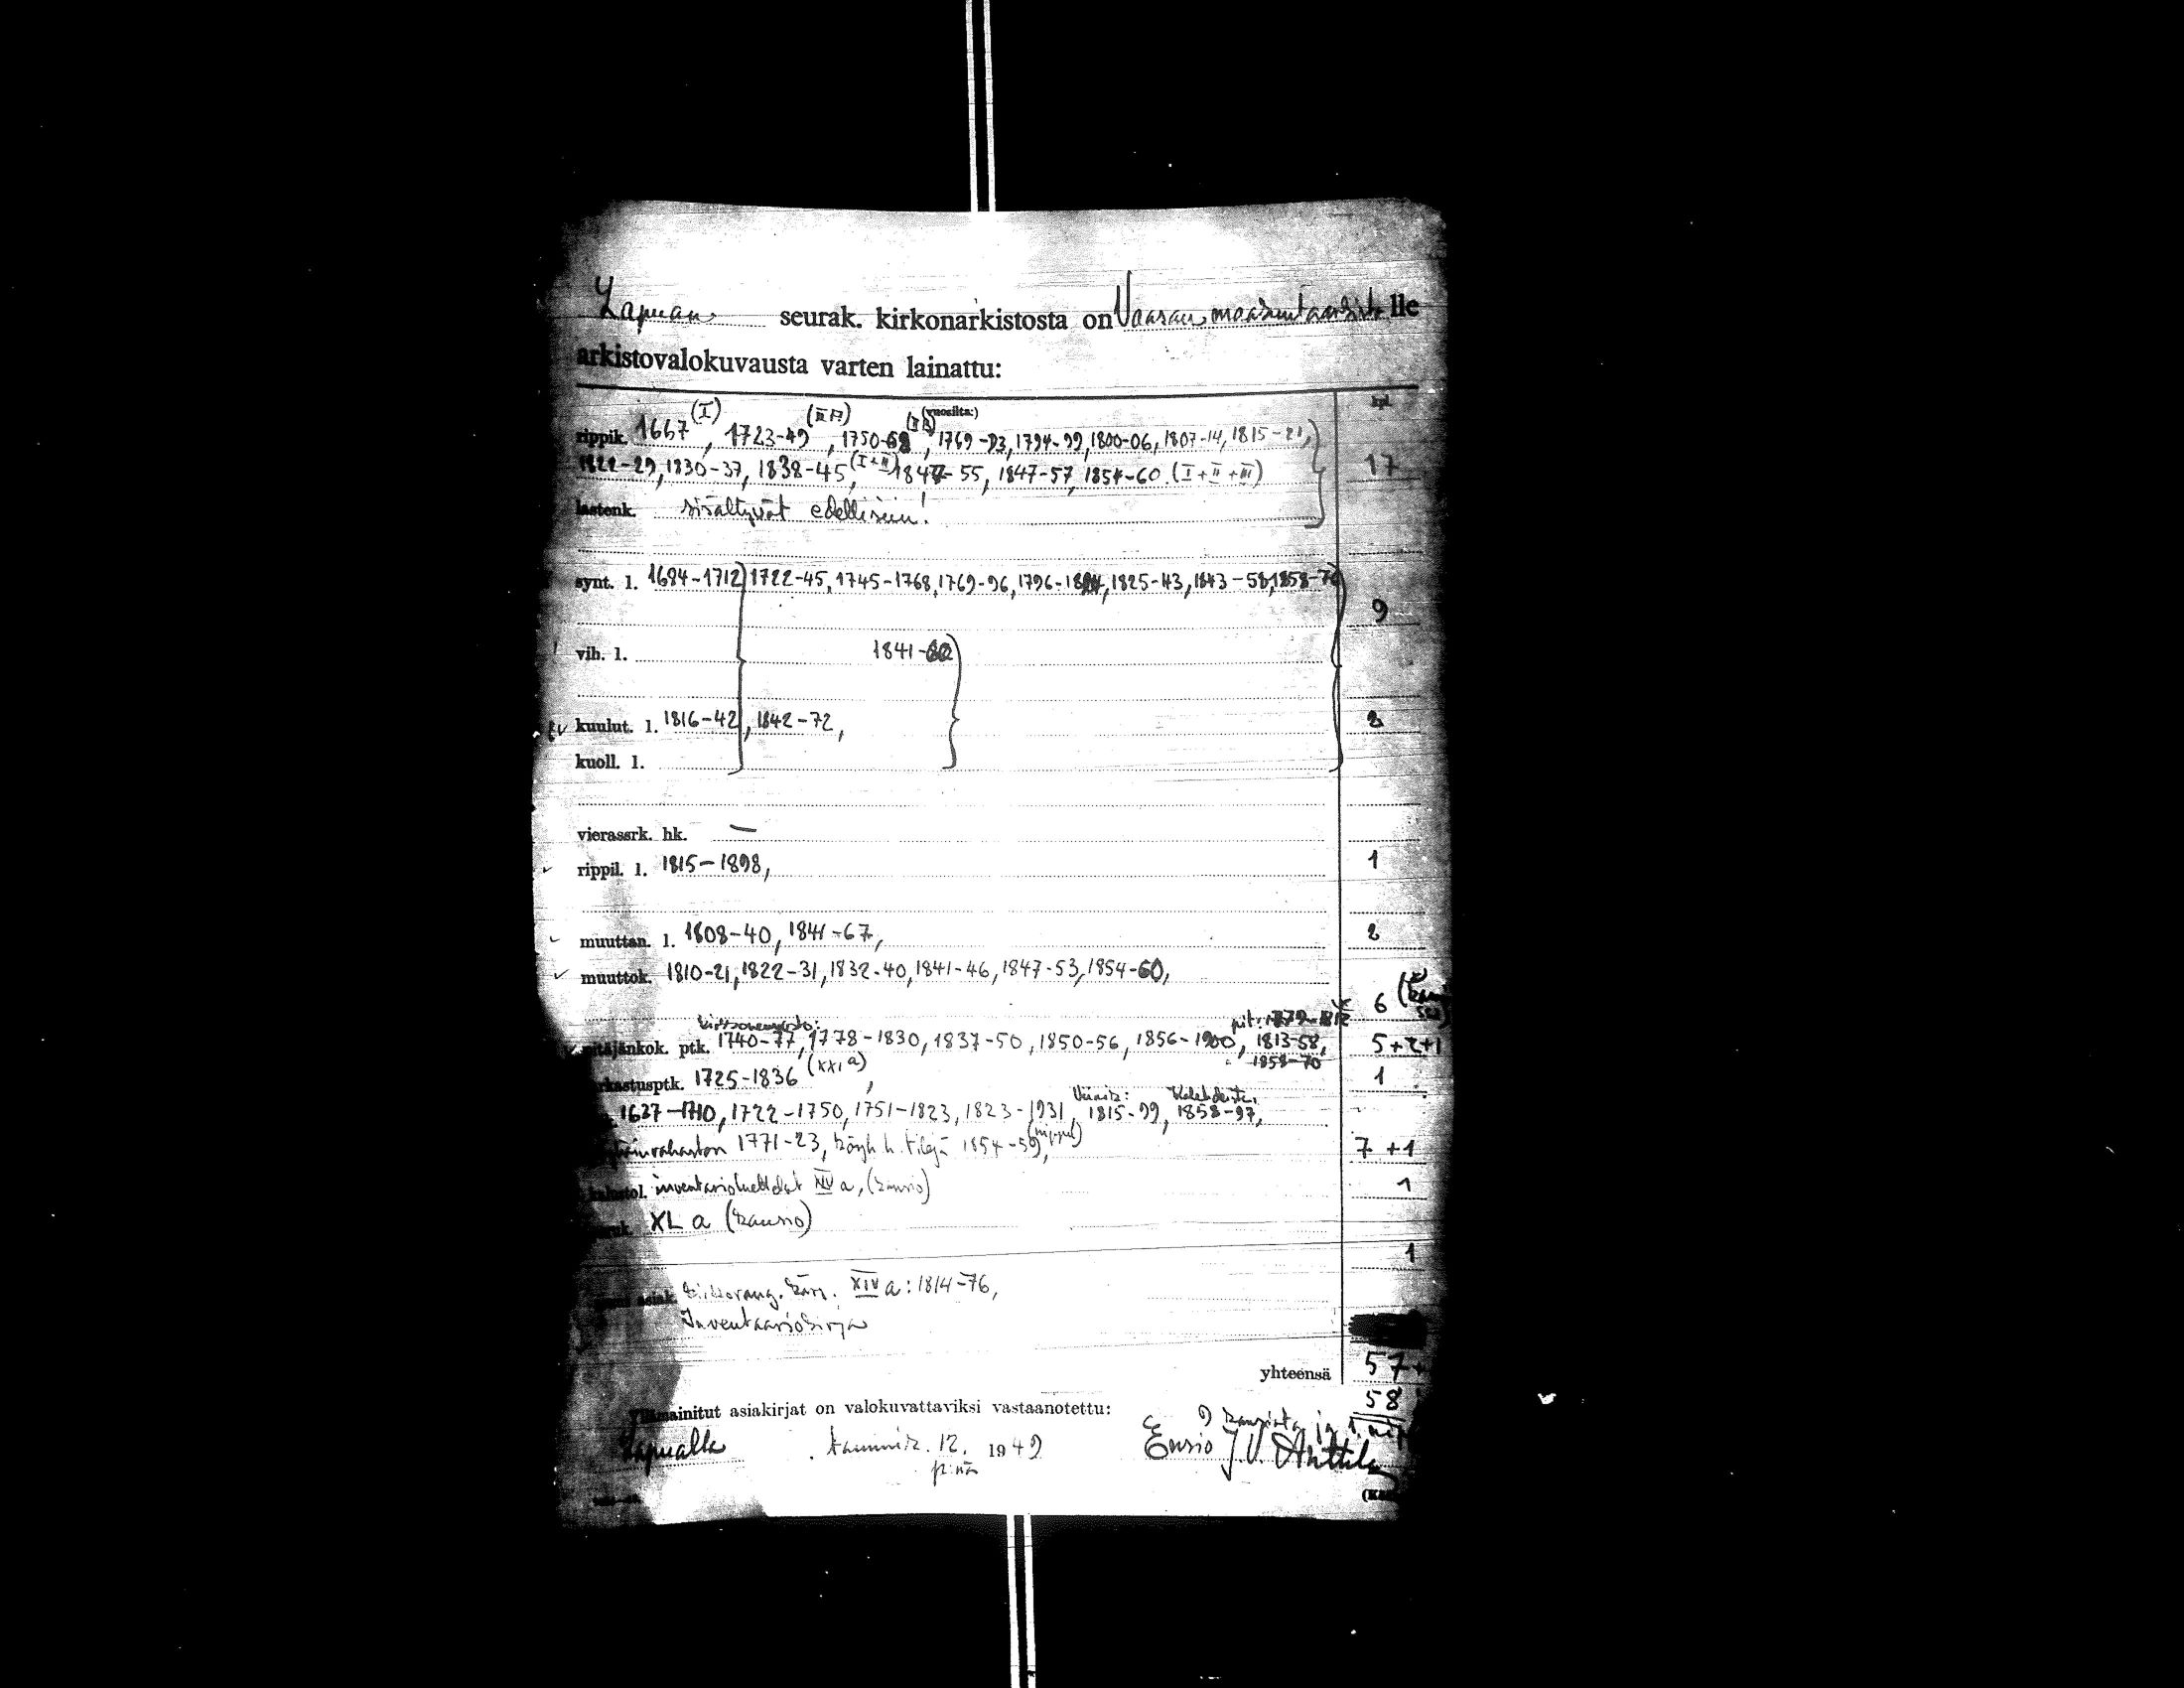 Lapuan seurak. kirkonarkistosta on Vaasan lle
arkistovalokuvausta varten lainattu:
kpl.
(I) (II A) (vuosilta:)
rippik. 1667, 1723-49, 1750-68, 1769-93, 1794-99, 1800-06, 1807-14, 1815-21,
1822-29, 1830-37, 1838-45, (I+II) 1847-55, 1847-57, 1854-60. (I+II+III) 17
lastenk. sisältyvät edellisiin!
synt. l. 1694-1712 1722-45, 1745-1768, 1769-96, 1796- 1825-43, 1843-58, 1858-
9
vih. l. 1841-
kuulut. l. 1816-42, 1842-72, 2
kuoll. l.
vierassrk. hk. —
rippil. l. 1815-1898, 1
muuttan. l. 1808-40, 1841-67, 2
muuttok. 1810-21, 1822-31, 1832-40, 1841-46, 1847-53, 1854-60,
6
pit.:
pitäjänkok. ptk. 1740-77, 1778-1830, 1837-50, 1850-56, 1856-1900, 1813-58, 5+2+1
1858-70
tarkastusptk. 1725-1836 (XXI a), 1
1637-1710, 1722-1750, 1751-1823, 1823-1931 1815-99, 1858-97,
1771-23, köyh. h. tilejä 1854-59, (nippu) 7+1
kalustol. inventarioluettelot XIV a, (kansio) 1
XL a (kansio)
1
asiak. XIV a: 1814-76,
Inventaariokirja
yhteensä 57
58
Yllämainitut asiakirjat on valokuvattaviksi vastaanotettu:
9 kansiota ja 1
Lapualla tammik. 12. p:nä 1949 Ensio J.V. Anttila